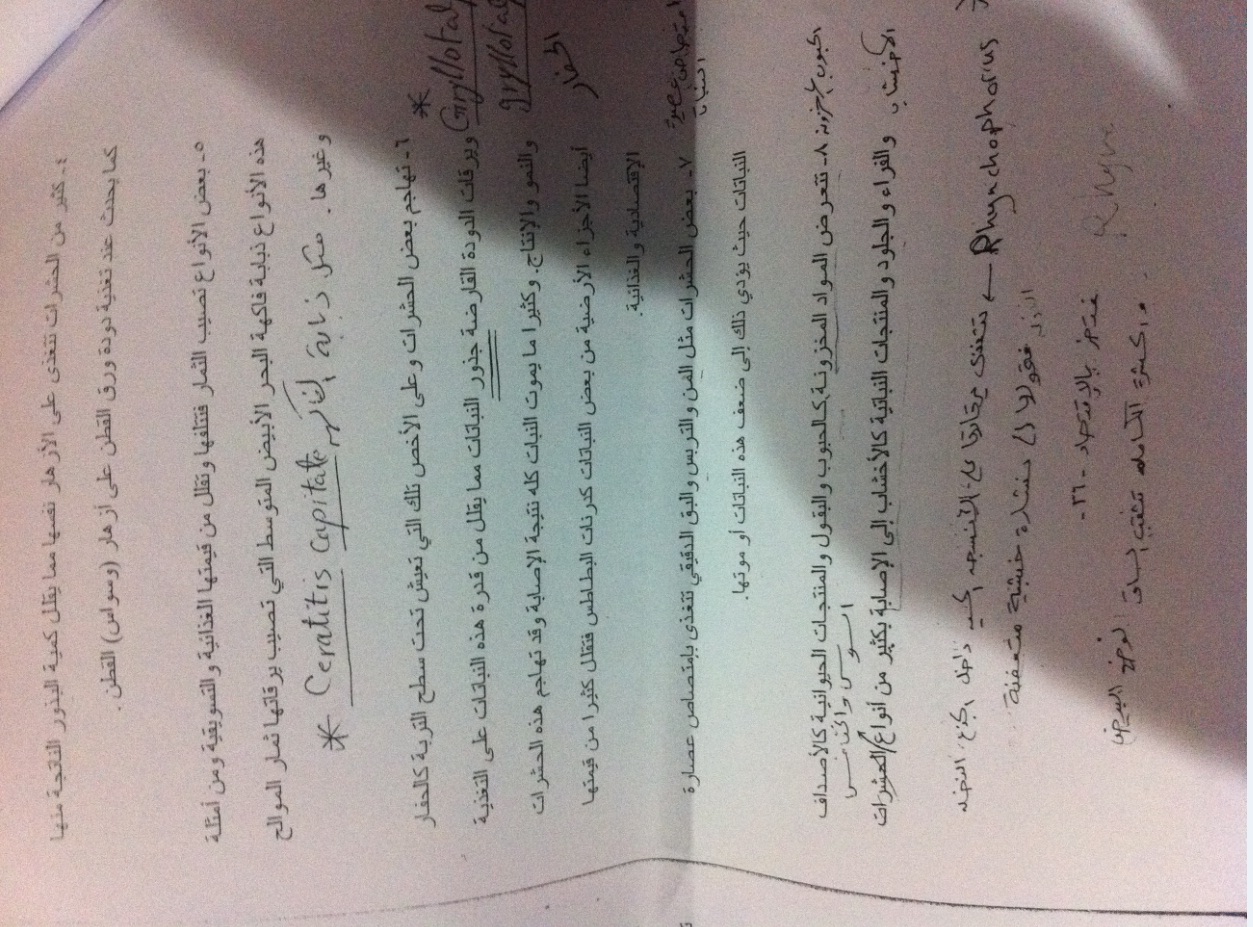 ٤- كثير من الحشرات تتغذى على الأزهار نفسها مما يقلل كمية البذور الناتجة منها
كما يحدث عند تغذية دودة ورق القطن على أزهار (وسواس) القطن.
٥- بعض الأنواع تصيب الثمار فتتلفها وتقلل من قيمتها الغذائية والتسويقية ومن أمثلة
هذه الأنواع ذبابة فاكهة البحر الأبيض المتوسط التي تصيب يرقاتها ثمار الموالح
وغيرها. مثل ذبابة
* Ceratitis Capitate
٦- تهاجم بعض الحشرات وعلى الأخص تلك التي تعيش تحت سطح التربة كالحفار
* Gryllotal
ويرقات الدودة القارضة جذور النباتات مما يقلل من قدرة هذه النباتات على التغذية
gryllotal
والنمو والإنتاج. وكثيرا ما يموت النبات كله نتيجة الإصابة وقد تهاجم هذه الحشرات
الحفار
أيضا الأجزاء الأرضية من بعض النباتات كدرنات البطاطس فتقلل كثيرا من قيمتها
الإقتصادية والغذائية.
٧- بعض الحشرات مثل المن والتربس والبق الدقيقي تتغذى بإمتصاص عصارة
امتصاص عصارة
النبات
النباتات حيث يؤدي ذلك إلى ضعف هذه النباتات أو موتها.
الحبوب المخزونة
٨- تتعرض المواد المخزونة كالحبوب والبقول والمنتجات الحيوانية كالأصداف
السوس والخنافس
والفراء والجلود والمنتجات النباتية كالأخشاب إلى الإصابة بكثير من أنواع الحشرات
الأخشاب
Rhynchophorus ← تتغذى يرقاتها على داخل جذع النخلة
نشارة خشبية متعفنة
- ٢٦ -
Rhyn
والحشرة الكاملة تثقب الساق لوضع البيض